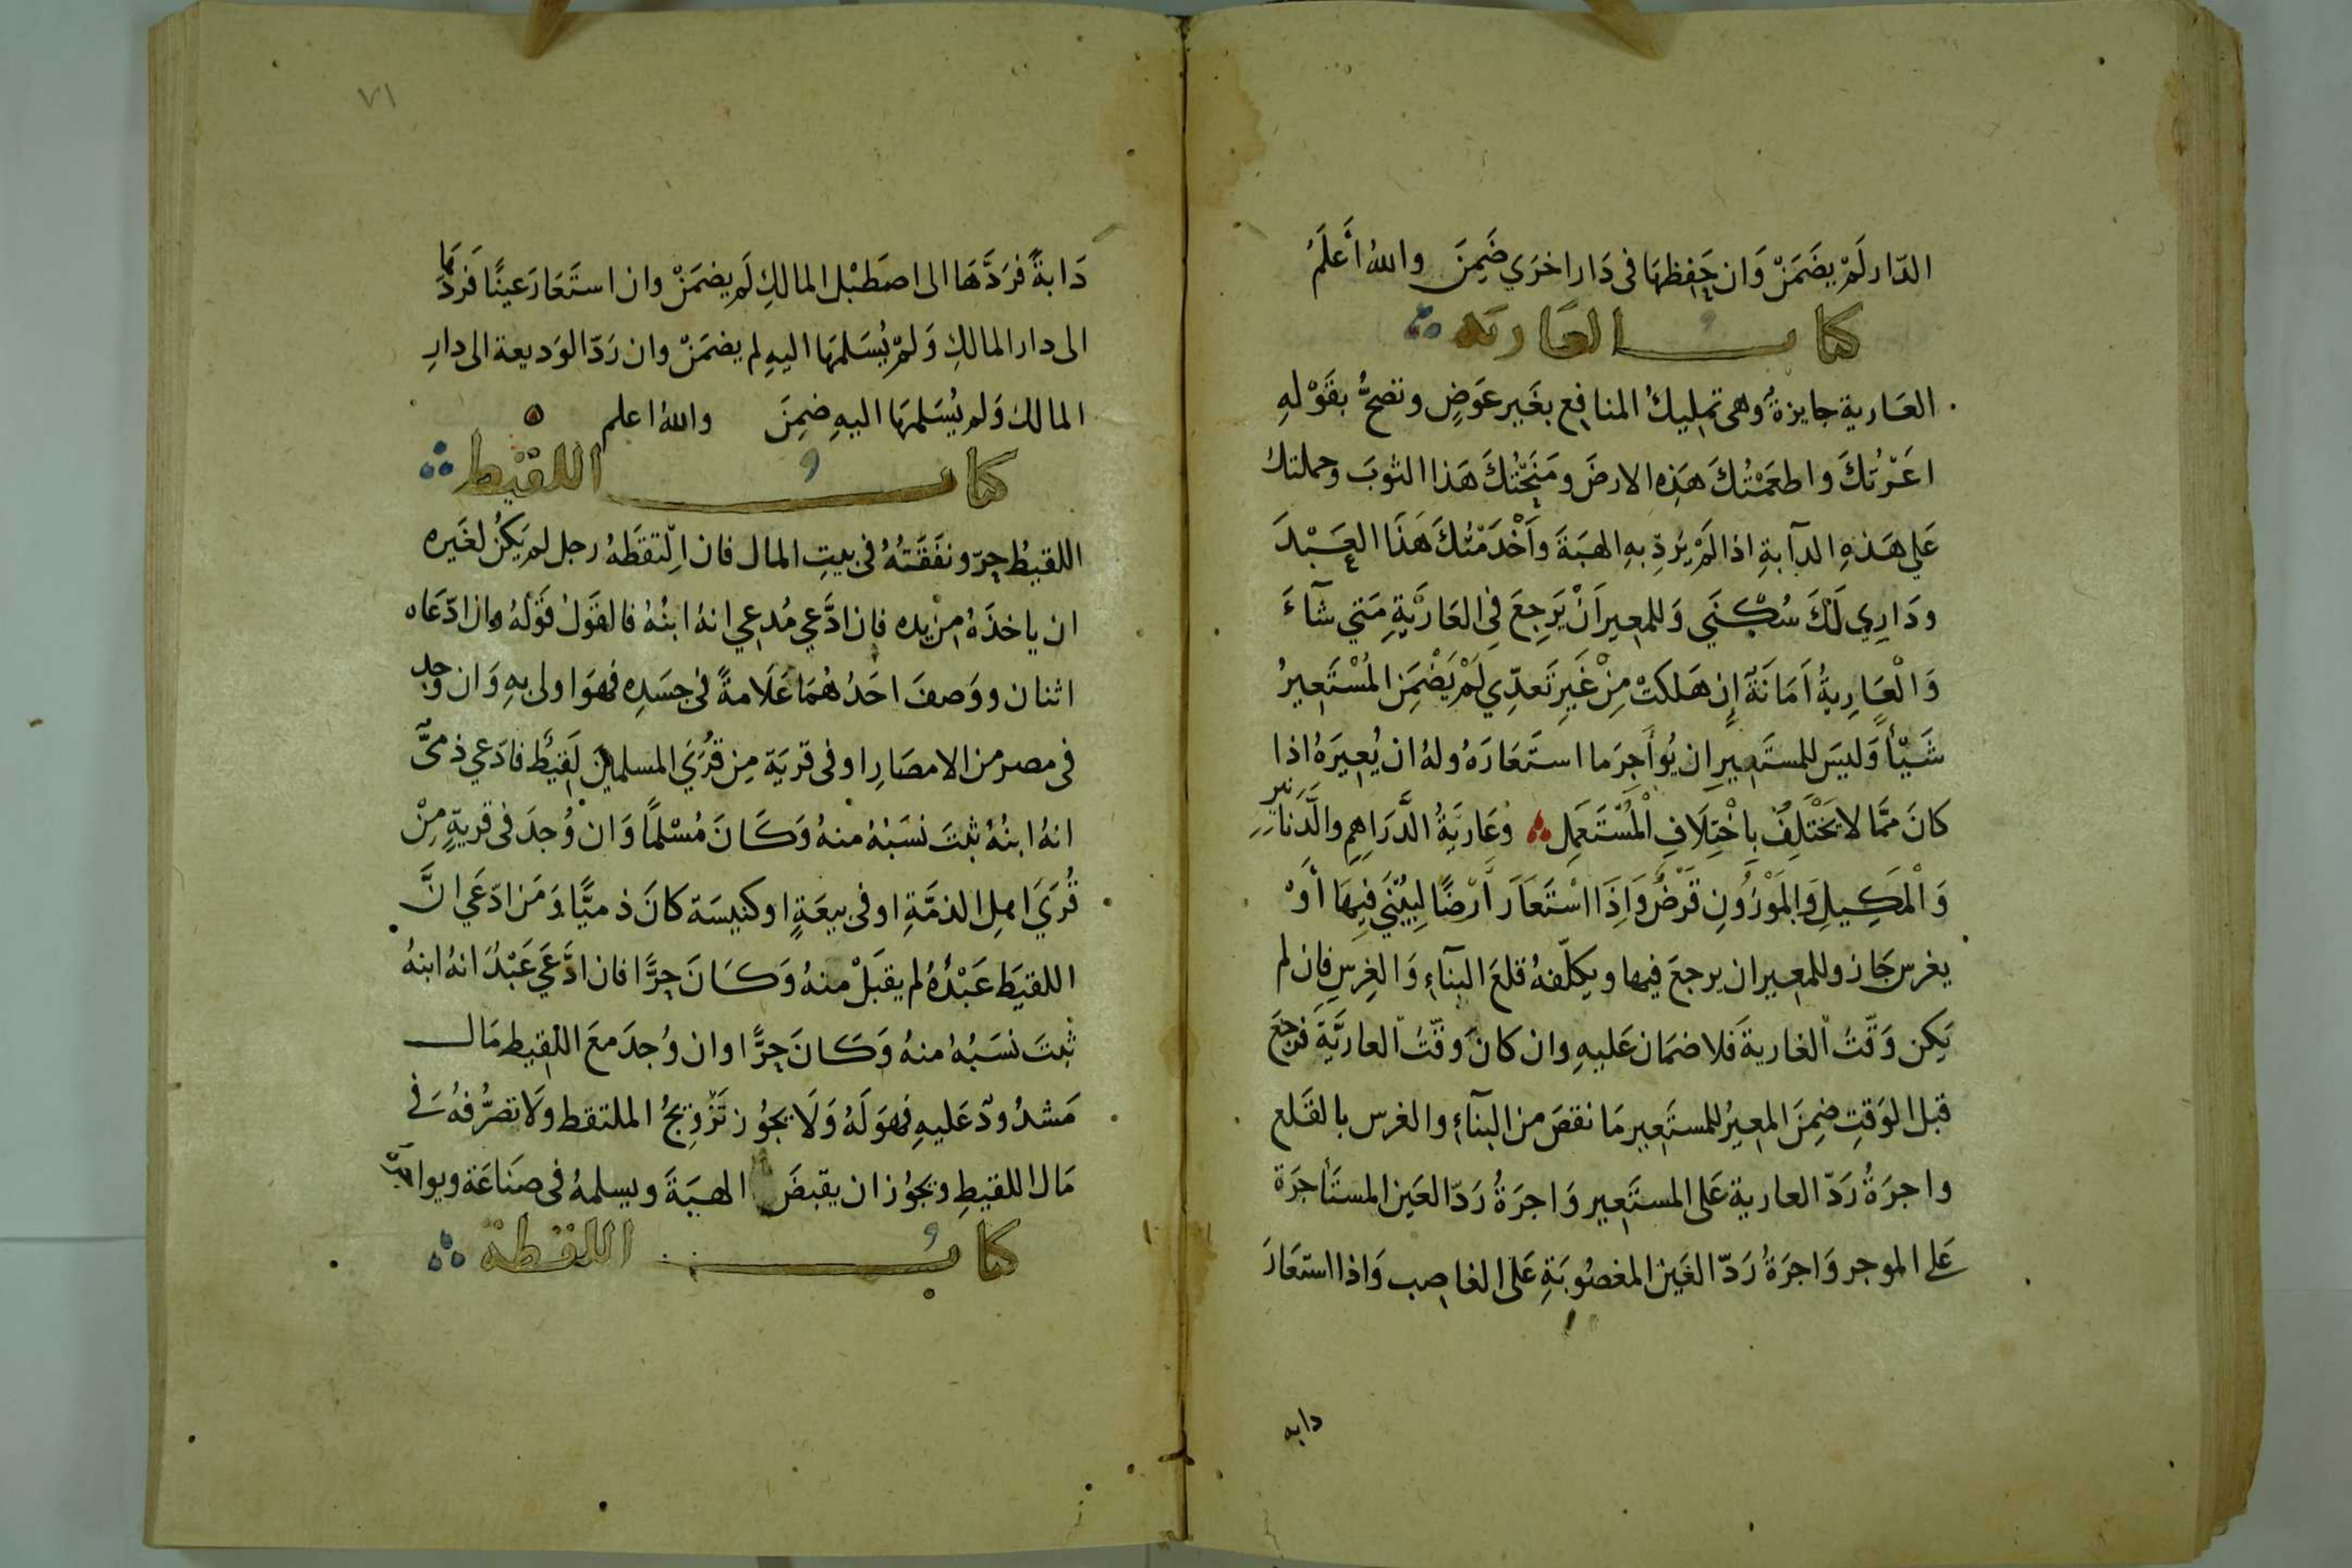 الدّار لَمْ يضَمَنْ وَان حَفِظهَا فى دَار اخرَي ضَمِنَ واللهُ أَعلَمُ
كتاب العَاريَه
العَارية جايزةُ وهى تمليكُ المنافِع بغَيرعَوَضٍ وتصحُّ بقَوْلهِ
اعَرْتُكَ واطعَمْتُكَ هَذِه الارضَ ومَنَحْتُكَ هَذا الثوبَ وحملتك
عَلي هَذهِ الدآبةِ اذا لَمْ يُردِّ بهِ الهبَةَ وأَخْدَمْتُكَ هَذَا العَبْدَ
ودَارِي لَكَ سُكْنَي وَللمعِير اَنْ يَرجِعَ فِى العَاريَّةِ مَتي شآءَ
وَالْعَارِيةُ اَمَانَة إِن هَلكتْ مِنْ غَيرِ تَعدِّي لَمْ يَضْمَنِ المُسْتَعِيرُ
شَيْأً وَليسَ للمستَعِير ان يُوأَجِرَ ما استَعَارَهُ ولهُ ان يُعِيرَهُ اذا
كانَ ممَّا لا يَخْتَلِفُ بِاخْتِلَافِ الْمُسْتَعمِل وَعَاريَّةُ الدَّرَاهِم والدَّنَانير
وَالْمَكِيلِ وَالمَوْزُونِ قَرْضٌ وَإِذَا اسْتَعَارَ أَرْضًا لِيبْنيَ فِيهَا أَوْ
يغرس جَاز وللمعير ان يرجعَ فيها ويكلّفهُ قلعَ البنآءِ وَالغِرسِ فاِن لم
يَكن وَقّتُ الغارية فَلا ضمَان عَليهِ وان كانَ وقّتُ العاريَّةِ فرجعَ
قبل الوَقتِ ضمِنَ المعِيرُ للمستَعِير مَا نقصَ من البنآءِ والغرس بالقَلع
واجرَةُ رَدّ العارية عَلى المستَعِير وَاجرَةُ رَدّ العَين المستَأجرَة
عَلى الموجر وَاجرَةُ رَدّ الغَين المغصُوبَةِ عَلى الغاصِب وَاذا استعَارَ
دابه
٧١
دَابةً فرَدَّهَا الى اصَطَبْل المالكِ لَم يضمَنْ وان استَعَارَ عينًا فَردّهَا
الى دار المالكِ وَلَمْ يُسَلمهَا اليهِ لم يضمَنْ وان رَدّ الوَديعة الى دارِ
المالك وَلم يُسَلمهَا اليهِ ضمِنَ واللهُ اعلم
كتابُ اللقيط
اللقيطُ حِرّ ونفَقَتُهُ فى بيتِ المال فان اِلتقطَهُ رجل لم يَكنُ لغَيره
ان ياخذَهُ من يده فان ادَّعي مُدعي انهُ ابنُهُ فالقَولُ قَوْلُهُ وان ادّعَاه
اثنان ووَصفَ احَدُهُمَا عَلَامةً فى جسَدِه فهوَ اولى بهِ وَان وجد
فى مصر من الامصَارِ او فى قريَة مِن قُرَيَ المسلمين لَقِيطٌ فادّعي ذمىٌّ
انهُ ابنُهُ ثبتَ نسَبُهُ منهُ وَكَانَ مُسْلمًا وَان وُجدَ فى قريةٍ مِنْ
قُرَيَ اهلِ الذمَّةِ او فى بيعَةٍ او كنيسَة كانَ ذميًّا وَمَن ادّعَي انَّ
اللقيَط عَبْدُهُ لم يقبَلْ منهُ وَكَانَ حِرًّا فان ادَّعَي عَبْدُ انهُ ابنهُ
ثبتَ نسَبُهُ منهُ وَكَانَ حِرًّا وان وُجدَ معَ اللقِيط مَال
مَشدُودٌ عَليهِ فهوَ لَهُ وَلَا يجُوز تَزْوِيجُ الملتقط وَلَا تصرُّفهُ فى
مَال اللقيطِ ويجوُز ان يقبضَ الهبَةَ ويسلمهُ فى صَنَاعَة ويواجره
كتابُ اللقطة